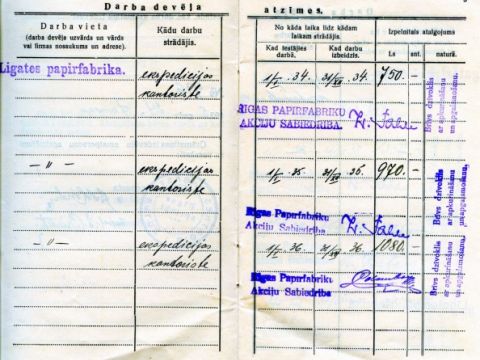 Darba devēja atzīmes.
Darba vieta
(darba devēja uzvārds un vārds
vai firmas nosaukums un adrese).
Kādu darbu
strādājis.
No kāda laika līdz kādam
laikam strādājis.
Izpelnītais atalgojums
Kad iestājies
darbā.
Kad darbu
izbeidzis.
Ls
ant.
naturā.
Līgates papīrfabrika.
ekspedicijas
kantoriste
1/I. 34.
31/XII 34.
750.-
Brīvs dzīvoklis
ar apkurināšanu
un apgaismošanu.
RIGAS PAPIRFABRIKU
AKCIJU SABIEDRIBA.
— " —
ekspedicijas
kantoriste
1/I. 35.
31/XII 35.
970.-
Brīvs dzīvoklis
ar apkurināšanu
un apgaismošanu.
Rigas Papirfabriku
Akciju Sabiedriba
— " —
ekspedicijas
kantoriste
1/I. 36.
31/XII 36.
1080.-
Brīvs dzīvoklis
ar apkurināšanu
un apgaismošanu.
Rigas Papirfabriku
Akciju Sabiedriba